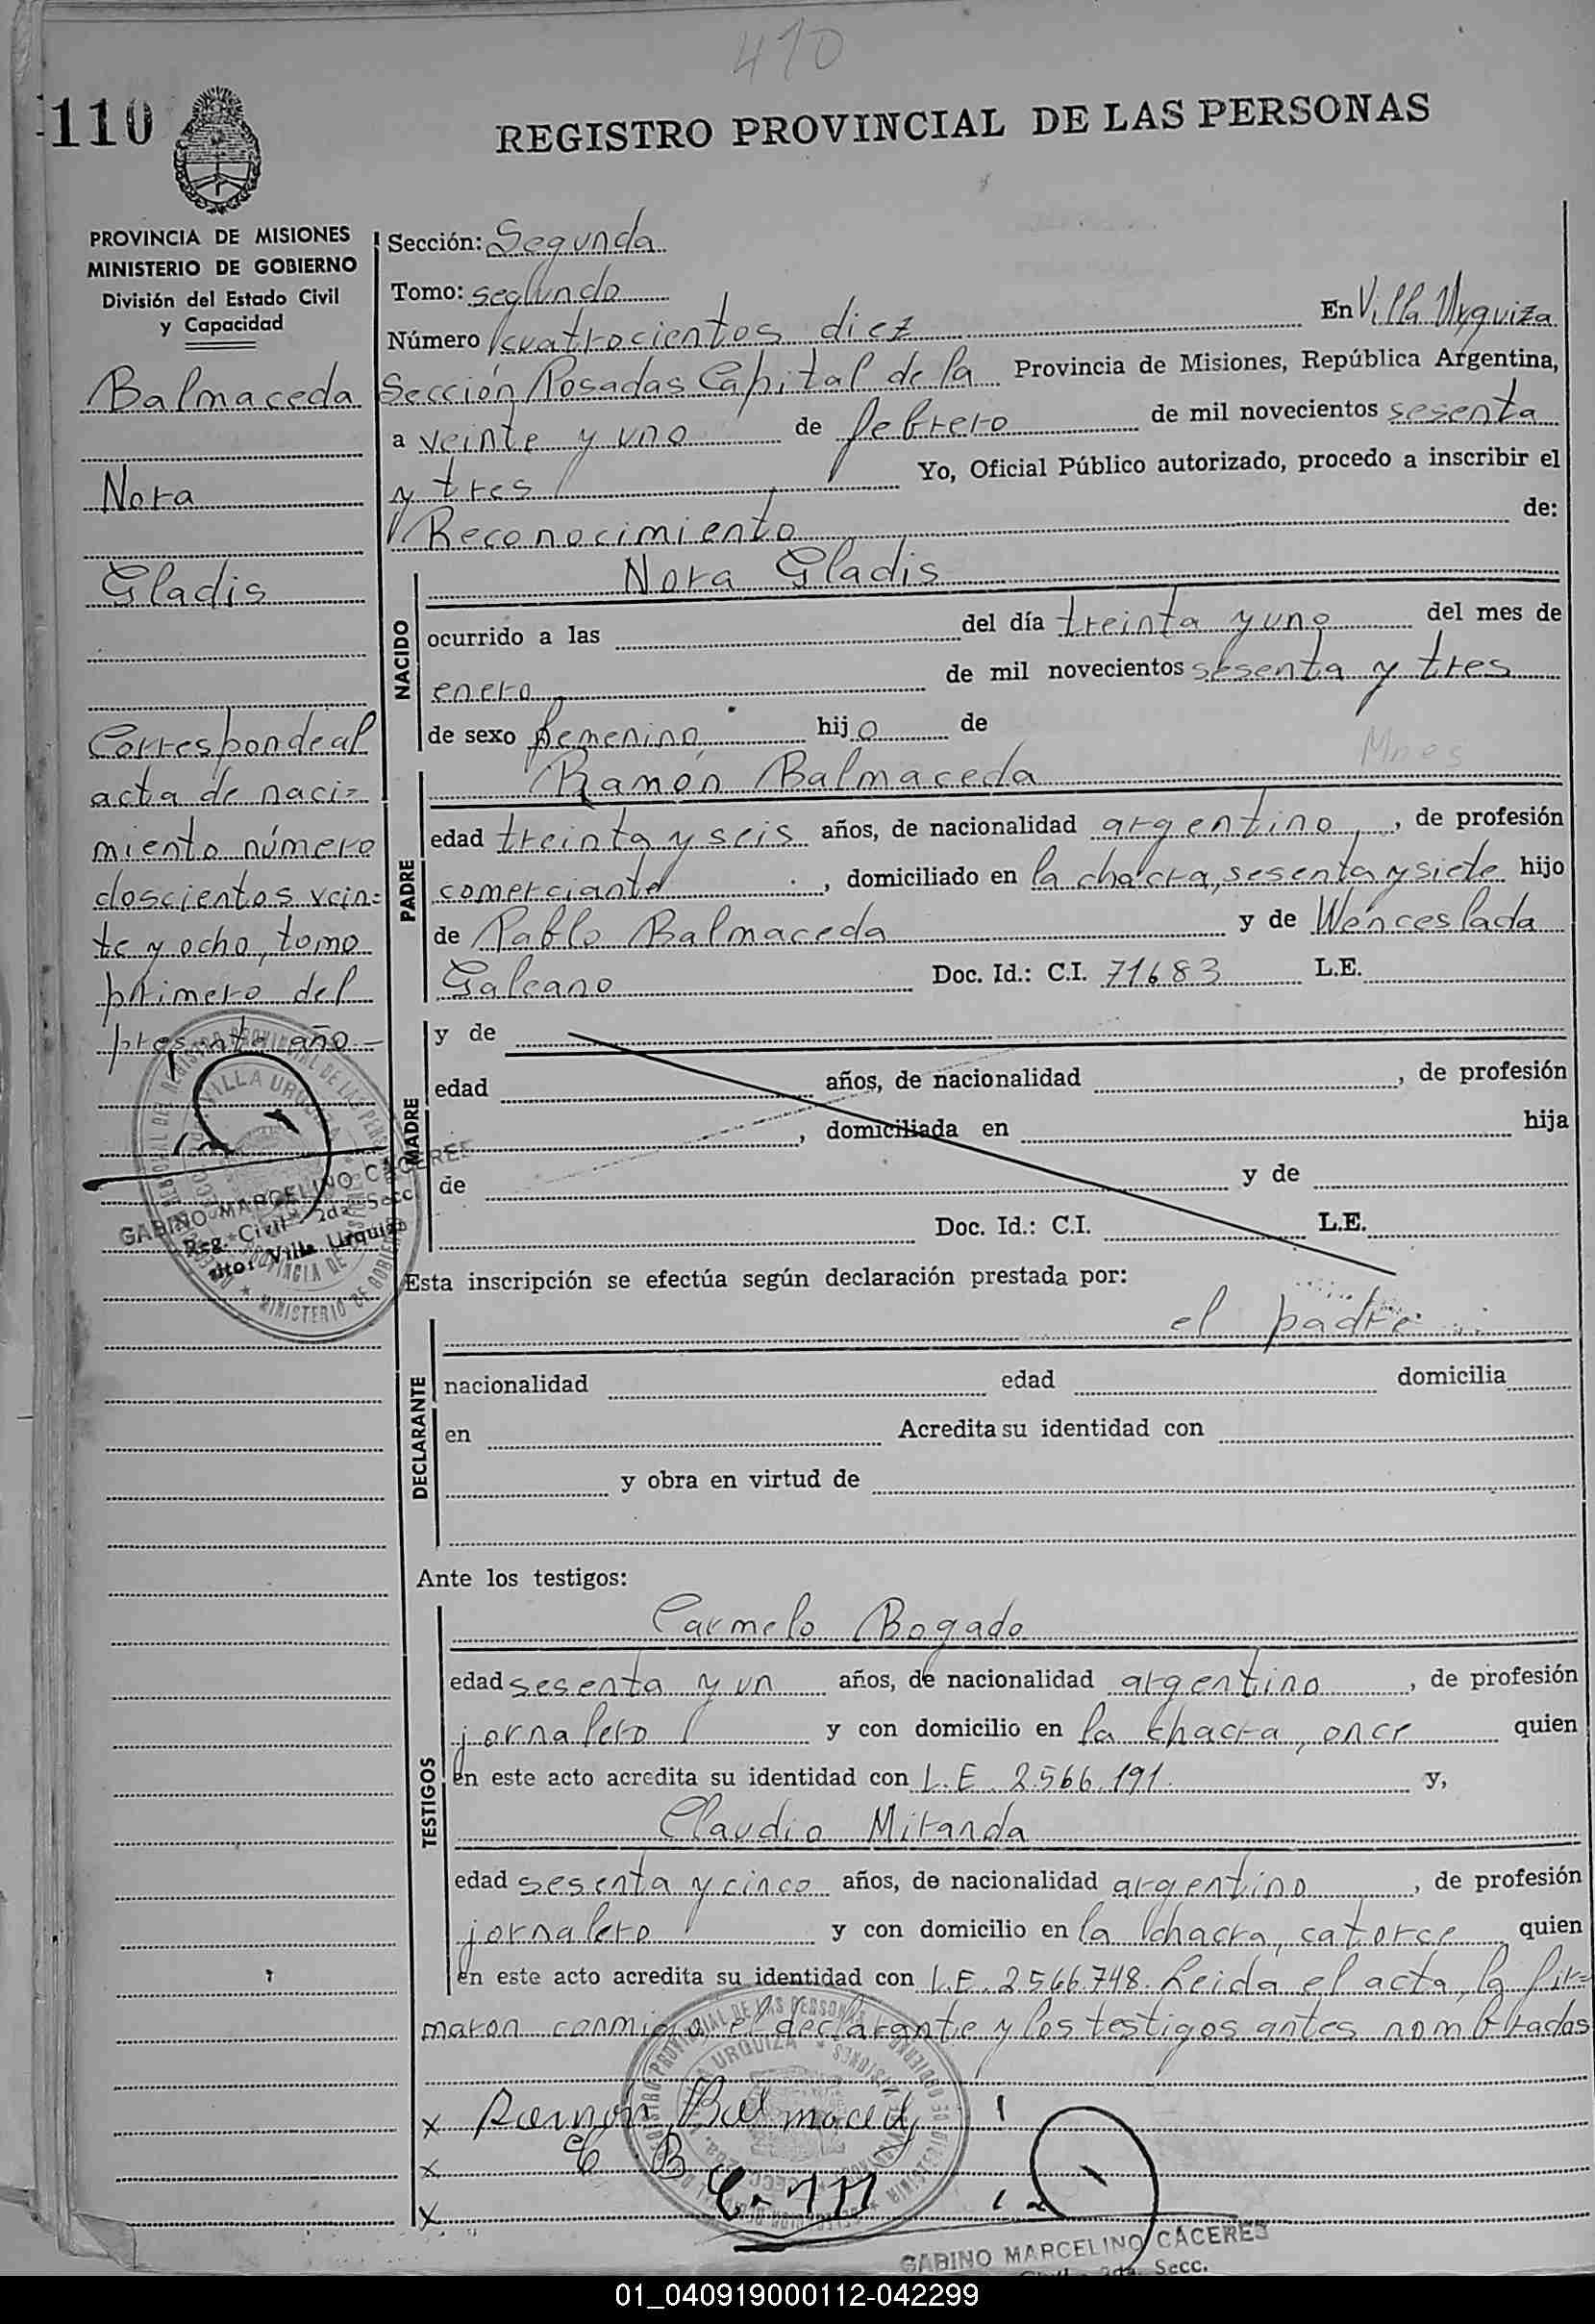 410
110
REGISTRO PROVINCIAL DE LAS PERSONAS
PROVINCIA DE MISIONES
MINISTERIO DE GOBIERNO
División del Estado Civil
y Capacidad
Balmaceda
Nora
Gladis
Corresponde al
acta de naci=
miento número
doscientos vein=
te y ocho, tomo
primero del
presente año.-
VILLA URQUIZA
GABINO MARCELINO CACERES
Reg. Civil 2da Secc
Villa Urquiza
MINISTERIO DE GOBIERNO
Sección: Segunda
Tomo: segundo
Número cuatrocientos diez En Villa Urquiza
Sección Posadas Capital de la Provincia de Misiones, República Argentina,
a veinte y uno de febrero de mil novecientos sesenta
y tres Yo, Oficial Público autorizado, procedo a inscribir el
Reconocimiento de:
NACIDO
Nora Gladis
ocurrido a las del día treinta y uno del mes de
enero de mil novecientos sesenta y tres
de sexo femenino hijo de
Mnes
PADRE
Ramón Balmaceda
edad treinta y seis años, de nacionalidad argentino, de profesión
comerciante, domiciliado en la chacra, sesenta y siete hijo
de Pablo Balmaceda y de Wenceslada
Galeano Doc. Id.: C.I. 71683 L.E.
MADRE
y de
edad años, de nacionalidad , de profesión
, domiciliada en hija
de y de
Doc. Id.: C.I. L.E.
Esta inscripción se efectúa según declaración prestada por:
el padre
DECLARANTE
nacionalidad edad domicilia
en Acredita su identidad con
y obra en virtud de
Ante los testigos:
TESTIGOS
Carmelo Bogado
edad sesenta y un años, de nacionalidad argentino, de profesión
jornalero y con domicilio en la chacra, once quien
en este acto acredita su identidad con L.E. 2.566.191. y,
Claudio Miranda
edad sesenta y cinco años, de nacionalidad argentino, de profesión
jornalero y con domicilio en la chacra, catorce quien
en este acto acredita su identidad con L.E. 2.566.748. Leida el acta, la fir=
maron conmigo el declarante y los testigos antes nombrados
x Ramón Balmaceda
x C B
x C-M
GABINO MARCELINO CACERES
2da. Secc.
01_040919000112-042299